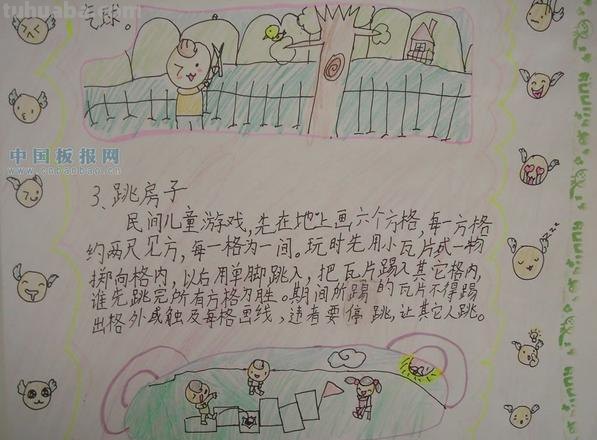 tuhuaba.com
气球。
中国板报网
www.cnbanbao.cn
3、跳房子
民间儿童游戏,先在地上画六个方格,每一方格
约两尺见方,每一格为一间。玩时先用小瓦片或一物
掷向格内,以后用单脚跳入,把瓦片踢入其它格内,
谁先跳完所有方格为胜。期间所踢的瓦片不得踢
出格外或触及每格画线,违者要停跳,让其它人跳。